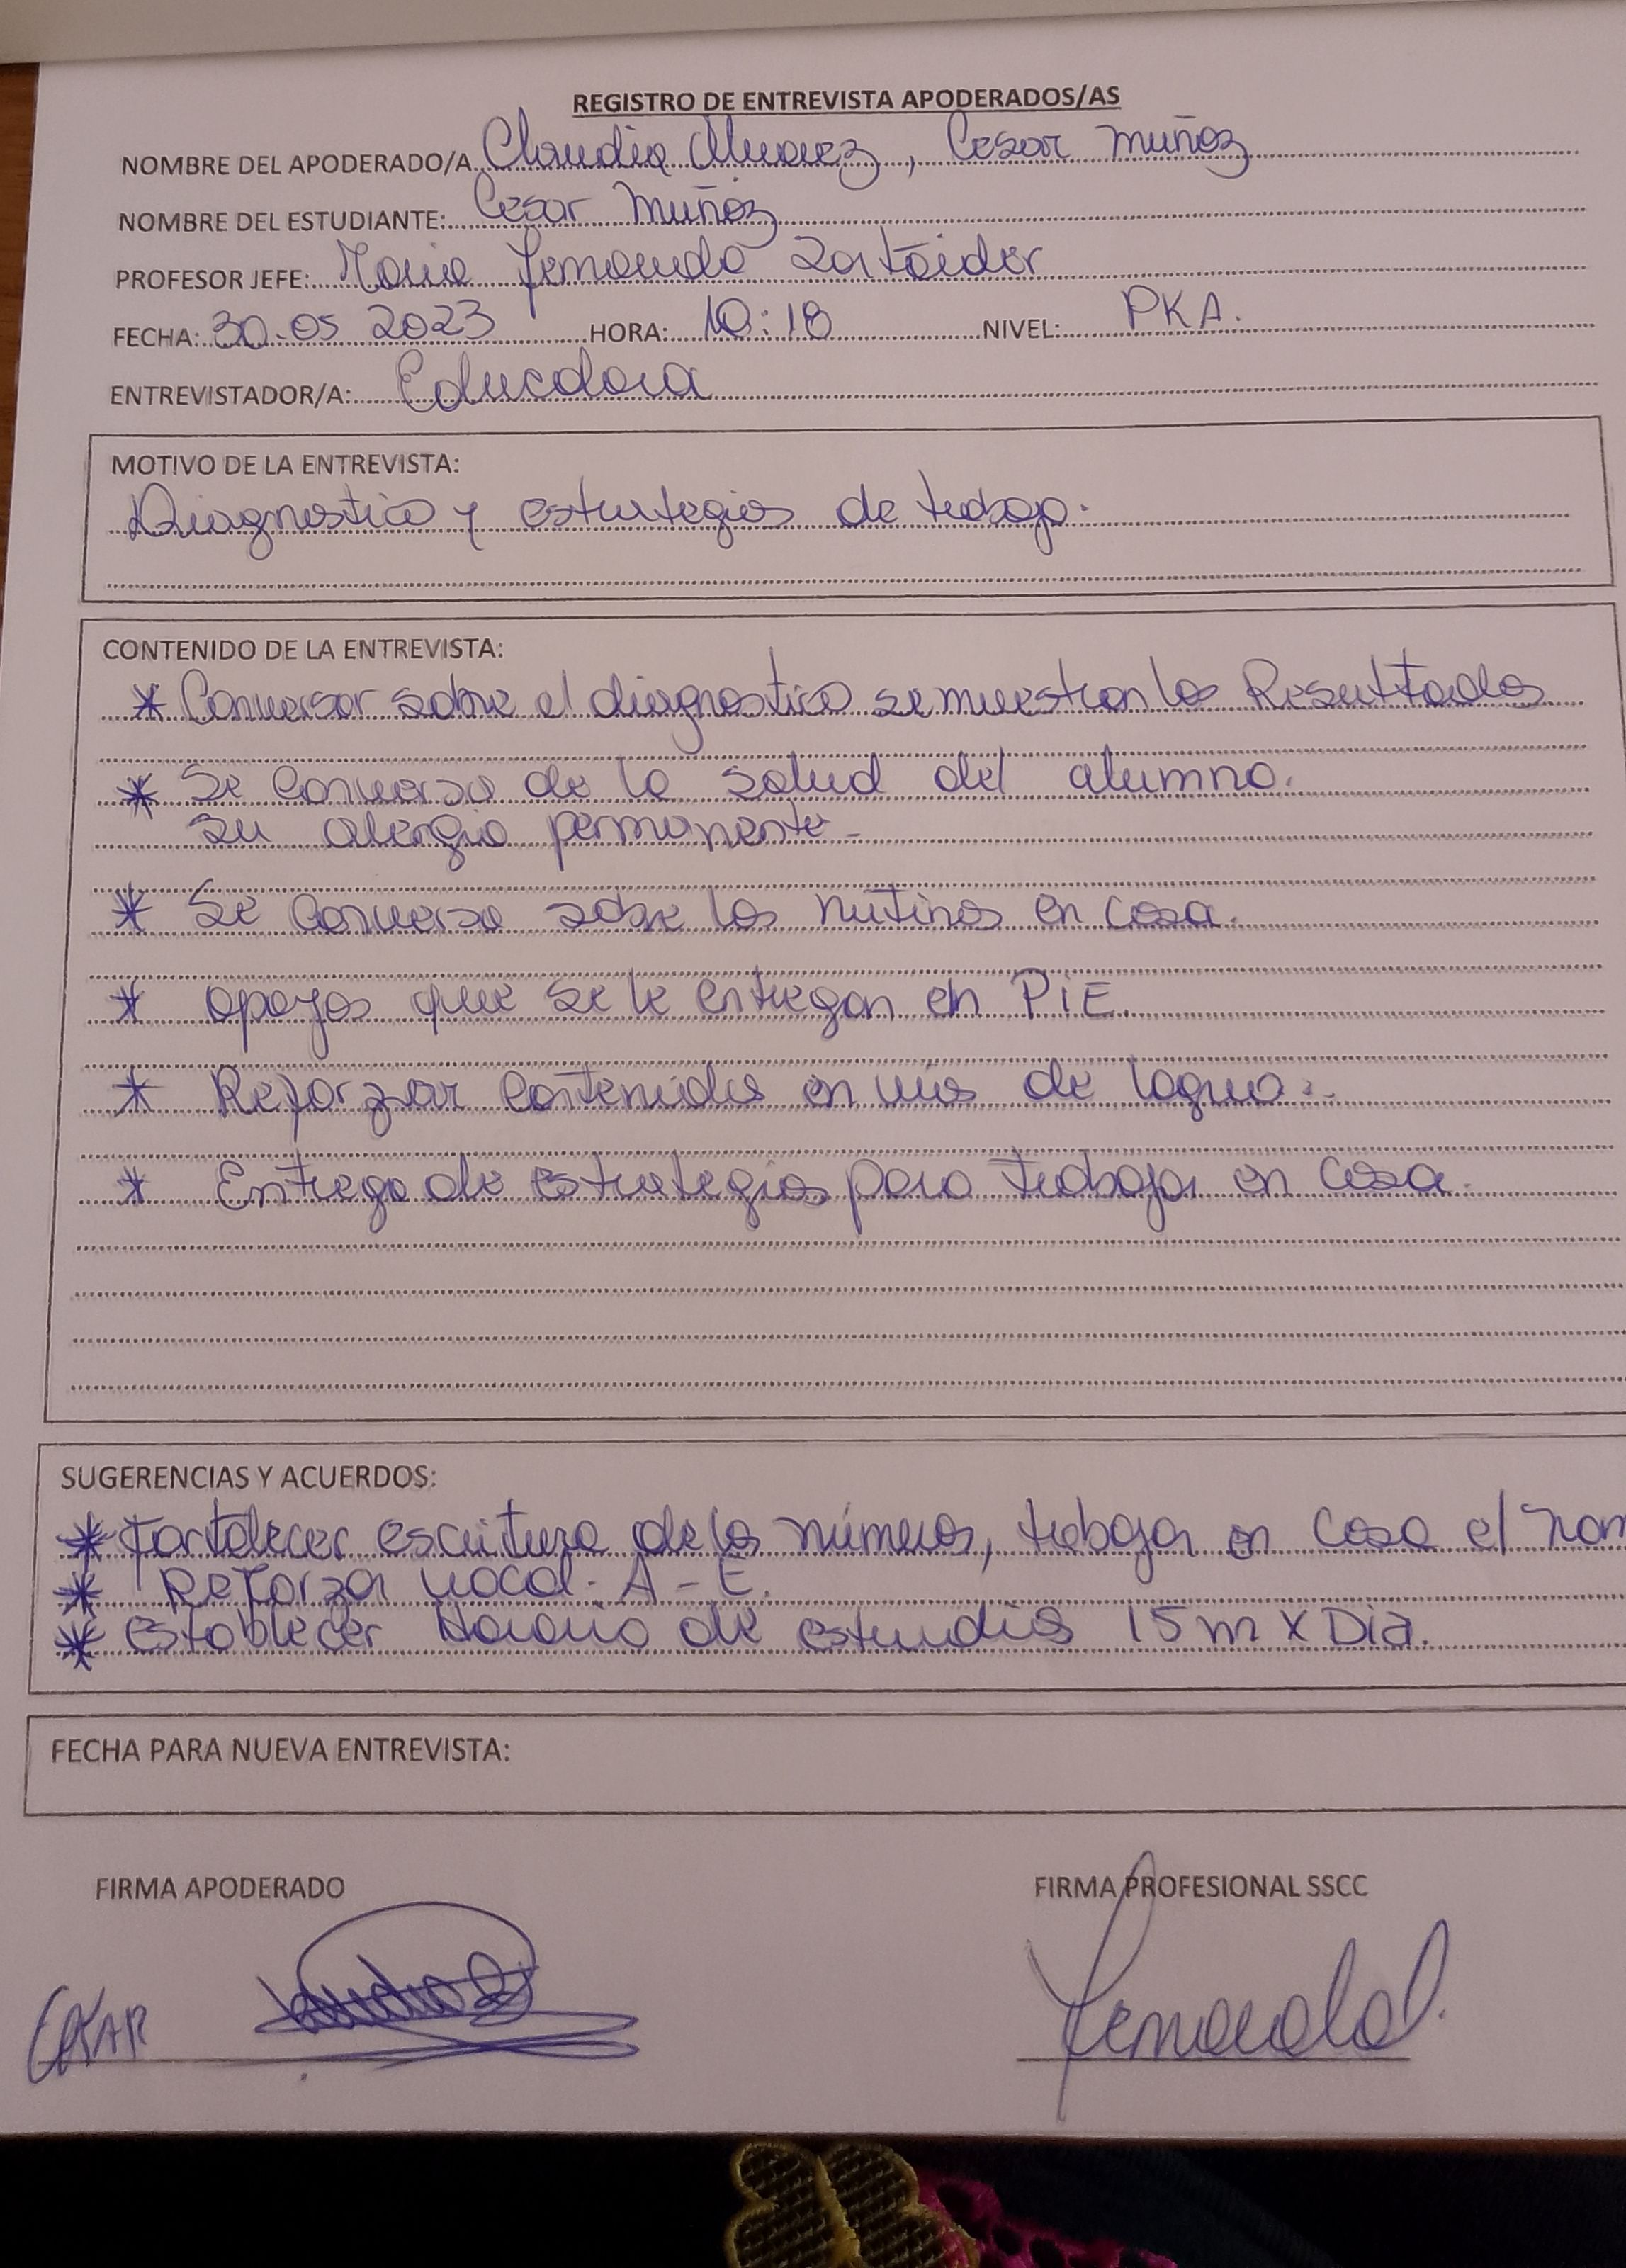 REGISTRO DE ENTREVISTA APODERADOS/AS
NOMBRE DEL APODERADO/A Claudia , Cesar Muñoz
NOMBRE DEL ESTUDIANTE: Cesar Muñoz
PROFESOR JEFE: Maria Fernanda
FECHA: 30-05 2023 HORA: 10:18 NIVEL: PKA.
ENTREVISTADOR/A: Educadora
MOTIVO DE LA ENTREVISTA:
Diagnostico y estrategias de trabajo.
CONTENIDO DE LA ENTREVISTA:
* Conversar sobre el diagnostico se muestran los Resultados
* Se conversa de la salud del alumno.
su alergia permanente -
* Se conversa sobre las rutinas en casa.
* apoyos que se le entregan en PIE.
* Reforzar contenidos en de
* Entrega de estrategias para trabajar en casa.
SUGERENCIAS Y ACUERDOS:
* Fortalecer escritura de los números, trabajar en casa el nom
* Reforzar vocal. A - E.
* establecer Horario de estudios 15 m x Dia.
FECHA PARA NUEVA ENTREVISTA:
FIRMA APODERADO FIRMA PROFESIONAL SSCC